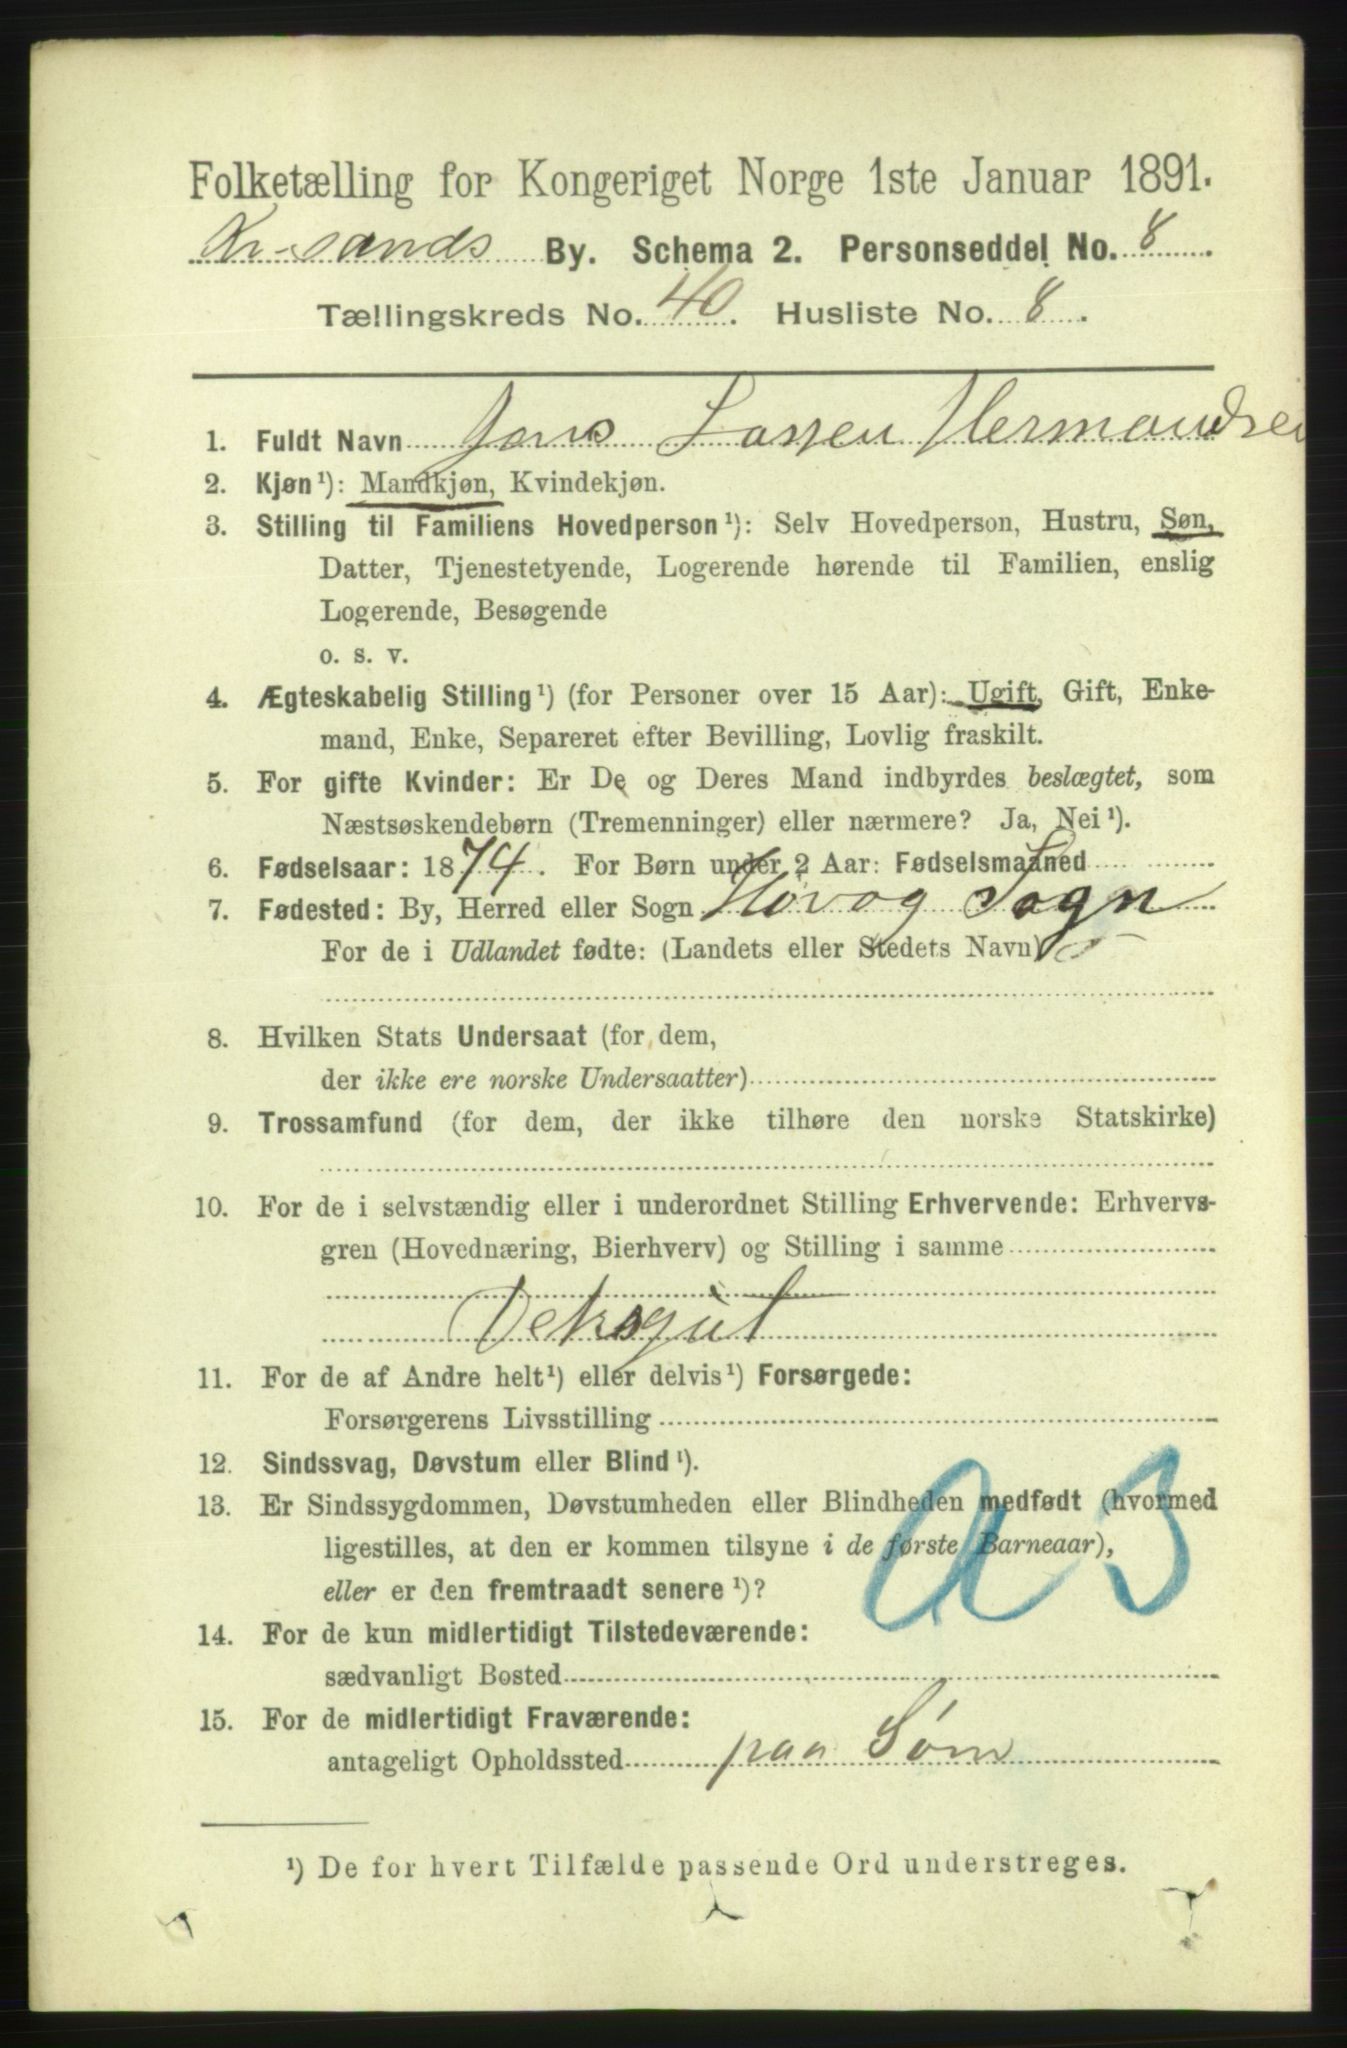 Folketælling for Kongeriget Norge 1ste Januar 1891.
Kr.sands By. Schema 2. Personseddel No. 8
Tællingskreds No. 40. Husliste No. 8.
1. Fuldt Navn Jens Lassen Hermandsen
2. Kjøn¹): Mandkjøn, Kvindekjøn.
3. Stilling til Familiens Hovedperson¹): Selv Hovedperson, Hustru, Søn,
Datter, Tjenestetyende, Logerende hørende til Familien, enslig
Logerende, Besøgende
o. s. v.
4. Ægteskabelig Stilling¹) (for Personer over 15 Aar): Ugift, Gift, Enke-
mand, Enke, Separeret efter Bevilling, Lovlig fraskilt.
5. For gifte Kvinder: Er De og Deres Mand indbyrdes beslægtet, som
Næstsøskendebørn (Tremenninger) eller nærmere? Ja, Nei¹).
6. Fødselsaar: 1874. For Børn under 2 Aar: Fødselsmaaned
7. Fødested: By, Herred eller Sogn Høvog Sogn
For de i Udlandet fødte: (Landets eller Stedets Navn)
8. Hvilken Stats Undersaat (for dem,
der ikke ere norske Undersaatter)
9. Trossamfund (for dem, der ikke tilhøre den norske Statskirke)
10. For de i selvstændig eller i underordnet Stilling Erhvervende: Erhvervs-
gren (Hovednæring, Bierhverv) og Stilling i samme
Deksgut
11. For de af Andre helt¹) eller delvis¹) Forsørgede:
Forsørgerens Livsstilling
12. Sindssvag, Døvstum eller Blind¹).
13. Er Sindssygdommen, Døvstumheden eller Blindheden medfødt (hvormed
ligestilles, at den er kommen tilsyne i de første Barneaar),
eller er den fremtraadt senere¹)?
14. For de kun midlertidigt Tilstedeværende:
sædvanligt Bosted
15. For de midlertidigt Fraværende:
antageligt Opholdssted paa Søen
¹) De for hvert Tilfælde passende Ord understreges.